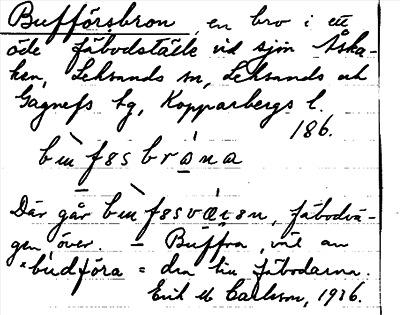 Bufförsbron, en bro i ett
öde fäbodställe vid sjön Åska-
ken, Leksands sn, Leksands och
Gagnefs tg, Kopparbergs l.
186.
Där går fäbodvä-
gen över. — Buffra, väl av
*budföra = dra till fäbodarna.
Erik M Carlsson, 1936.